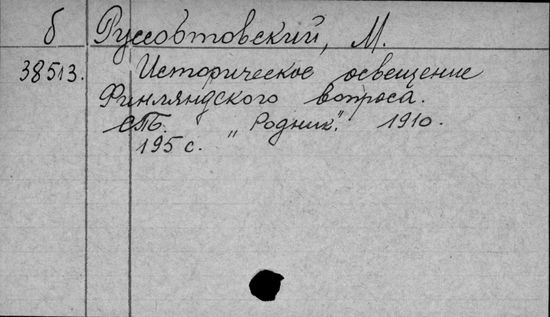 б Руссовтовский, М.
38513. Историческое освещение
Финляндского вопроса.
СПб. „Родник". 1910.
195 с.